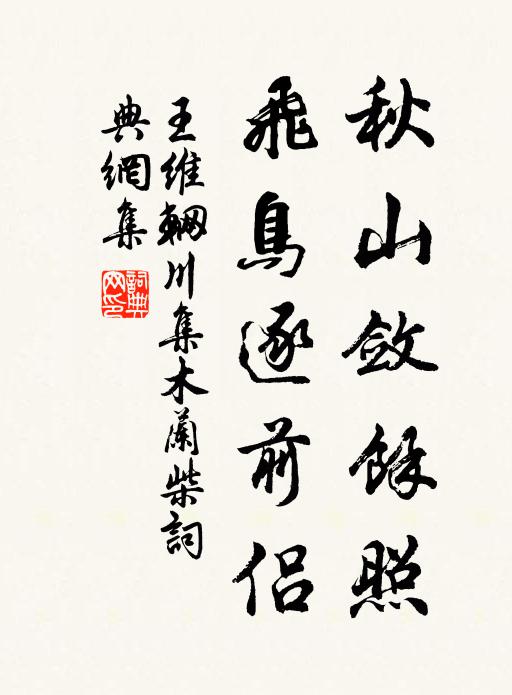 秋山斂餘照
飛鳥逐前侶
王維輞川集木蘭柴詞
典網集
詞典網印